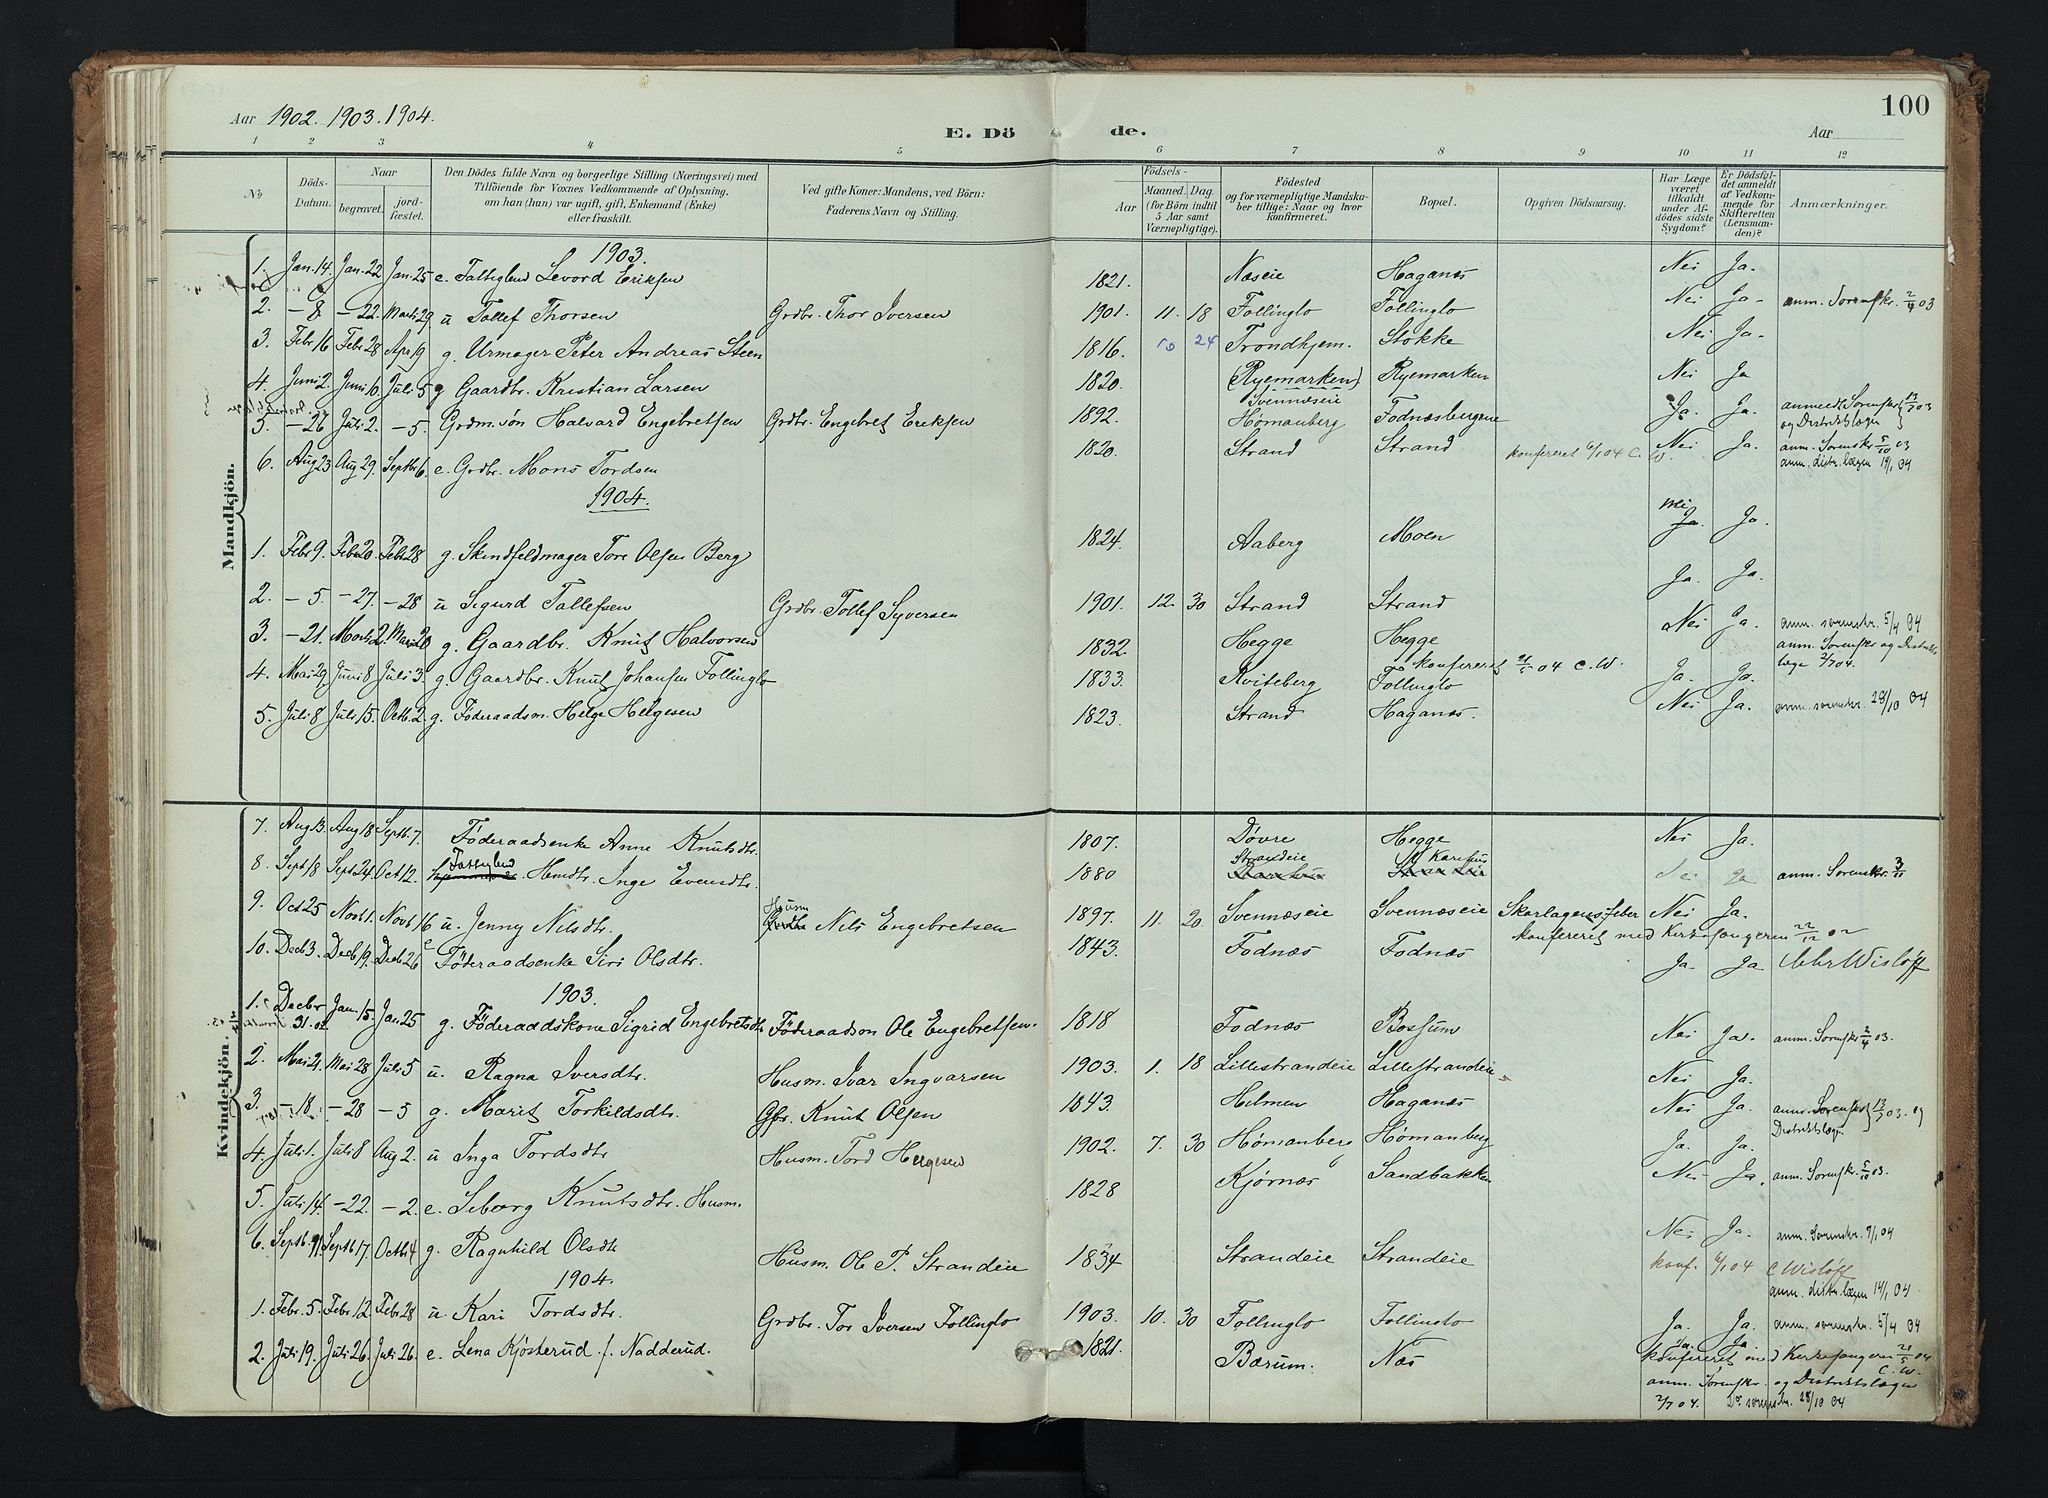 100
Aar 1902. 1903. 1904.
E. Dö de.
Aar
1 2 3 4 5 6 7 8 9 10 11 12
No
Döds-Datum.
Naar begravet. jordfæstet.
Den Dödes fulde Navn og borgerlige Stilling (Næringsvei) med Tilföiende for Voxnes Vedkommende af Oplysning, om han (hun) var ugift, gift, Enkemand (Enke) eller fraskilt.
Ved gifte Koner: Mandens, ved Börn: Faderens Navn og Stilling.
Födsels-
Aar
Maaned. Dag. (for Börn indtil 5 Aar samt Værnepligtige).
Födested og for værnepligtige Mandskaber tillige: Naar og hvor konfirmeret.
Bopæl.
Opgiven Dödsaarsag.
Har Læge været tilkaldt under Afdödes sidste Sygdom?
Er Dödsfaldet anmeldt af Vedkommende for Skifteretten (Lensmanden)?
Anmærkninger.
Mandkjön.
1903.
1. Jan. 14. Jan. 22 Jan. 25 e. Fattiglem Levord Eriksen 1821. Næseie Haganæs Nei Ja.
2. – 8 – 22. Marts 29 u Tollef Thorsen Grdbr. Thor Iversen 1901. 11. 18 Follinglo Follinglo Nei Ja – anm. Sorenskr. 2/4 03
3. Febr 16 Febr 28 Apr 19 g. Urmager Peter Andreas Steen 1816. 10 24 Trondhjem. Stokke Nei Ja –
4. Juni 2. Juni 6. Juli 5 g Gaardbr. Kristian Larsen 1820. (Ryemarken) Ryemarken Nei Ja
5. – 26 Juli 2. – 5. Grdm.søn Halvard Engebretsen Grdbr. Engebret Eriksen 1892. Svennæseie Hømanberg Fodnæsbergene Ja. Ja. anmeldt Sorenskr og Distriktslægen 13/7 03
6. Aug 23 Aug 29. Septb 6 e. Grdbr. Mons Tordsen 1820. Strand Strand konfereret 6/1 04 C. W. Nei Ja. anm. Sorenskr 5/10 03
anm. distr. lægen 19/1 04
1904.
1. Febr 9. Febr 20. Febr 28 g. Skindfeldmager Tore Olsen Berg 1824. Aaberg Moen nei Ja. Ja.
2. – 5. – 27. – 28 u Sigurd Tollefsen Grdbr. Tollef Syversen 1901. 12. 30 Strand Strand Ja. Ja.
3. – 21. Marts 2. Marts 20 g. Gaardbr. Knut Halvorsen 1832. Hegge Hegge Nei Ja. anm. sorenskr. 5/4 04
4. Mai 29 Juni 8 Juli 3. g. Gaardbr. Knut Johansen Follinglo 1833. Kviteberg Follinglo konfereret 21/5 04 C. W. Ja. Ja. anm. Sorenskr og Distriktslæge 2/7 04.
5. Juli 8 Juli 15. Octb. 2 g. Føderaadsm. Helge Helgesen 1823. Strand Haganæs. Nei Ja. anm. sorenskr. 28/10 04
Kvindekjön.
7. Aug 13. Aug 18 Septb. 7. Føderaadsenke Anne Knutsdtr. 1807. Dovre Hegge Nei Ja.
8. Sept 18 Sept 24. Oct 12. Fattiglem Hmdtr. Inge Evensdtr. 1880 Strandeie Nei Ja anm. Sorenskr. 3/11
9. Oct 25 Novb 1. Novb 16 u. Jenny Nilsdtr. Husm Nils Engebretsen 1897. 11. 20 Svennæseie Svennæseie Skarlagensfeber Nei Ja.
konfereret med Kirkesangeren 22/12 02
10. Decb 3. Decb 19. Decb 26 e Føderaadsenke Siri Olsdtr. 1843. Fodnæs Fodnæs Ja. Ja Chr Wisløff
1903.
1. Decbr 31. 02. Jan. 15. Jan 25 g. Føderaadskone Sigrid Engebretsdtr Føderaadsm Ole Engebretsen. 1818 Fodnæs Bossum Nei Ja. anm. Sorenskr 2/4 03.
2. Mai 21. Mai 28 Juli 5 u. Ragna Iversdtr. Husm. Ivar Ingvarsen 1903. 1. 18 Lillestrandeie Lillestrandeie Nei Ja.
3. – 18. – 28 – 5 g. Marit Torkildsdtr. Gbr. Knut Olsen 1843. Hilmen Haganæs Nei Ja. anm. Sorenskr 13/7 03. og Distriktslægen
4. Juli 1. Juli 8 Aug 2. u Inga Tordsdtr Husm. Tord Helgesen 1902. 7. 30 Hømanberg Hømanberg Ja. Ja.
5. Juli 14. – 22. – 2. e. Seborg Knutsdtr. Husm. 1828 Kjørnæs Sandbakken Nei Ja. anm. Sorenskr. 5/10 03.
6. Septb. 9. Septb 17. Octb 4 g. Ragnhild Olsdtr Husm. Ole P. Strandeie 1834 Strandeie Strandeie Nei Ja. anm. Sorenskr. 9/1 04
konf. 6/1 04 C Wisløff
anm. distr. lægen 19/1 04
1904.
1. Febr. 5. Febr 12. Febr 28 u. Kari Tordsdtr. Grdbr. Tor Iversen Follinglo 1903. 10. 30 Follinglo Follinglo Ja. Ja. anm. sorenskr. 5/4 04
2. Juli 19. Juli 26. Juli 26. e. Lena Kjøsterud f. Nadderud. 1821. Bærum. Næs Ja. Ja
konfereret med Kirkesangeren 21/5 04 C. W.
anm. Sorenskr. og Distriktslægen 2/7 04. Do sorenskr. 28/10 04